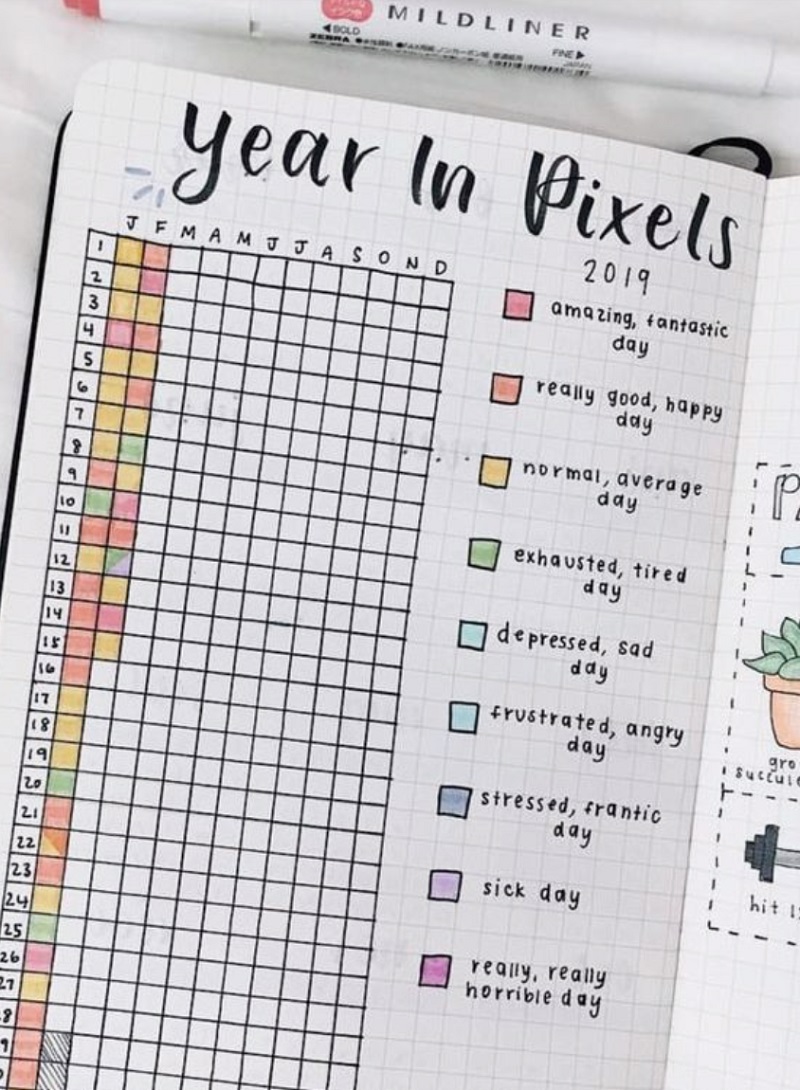 MILDLINER
◀BOLD
FINE▶
ZEBRA
JAPAN
Year In Pixels
2019
J F M A M J J A S O N D
1
2
3
4
5
6
7
8
9
10
11
12
13
14
15
16
17
18
19
20
21
22
23
24
25
26
27
amazing, fantastic
day
really good, happy
day
normal, average
day
exhausted, tired
day
depressed, sad
day
frustrated, angry
day
stressed, frantic
day
sick day
really, really
horrible day
gro
succule
hit